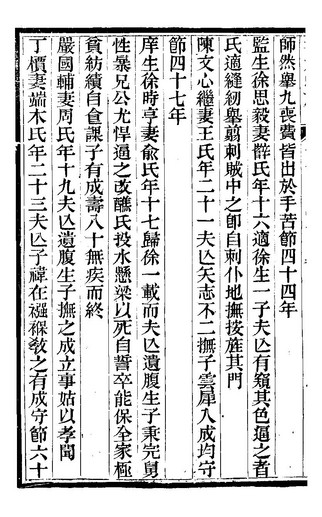 師然舉九喪費皆出於手苦節四十四年
監生徐思毅妻薛氏年十六適徐生一子夫亾有窺其色逼之者
氏適縫紉舉翦刺賊中之卽自刺仆地撫按旌其門
陳文心繼妻王氏年二十一夫亾矢志不二撫子雲犀入成均守
節四十七年
庠生徐時亨妻兪氏年十七歸徐一載而夫亾遺腹生子秉完舅
性暴兄公尤悍逼之改醮氏投水懸梁以死自誓卒能保全家極
貧紡績自食課子有成壽八十無疾而終
嚴國輔妻周氏年十九夫亾遺腹生子撫之成立事姑以孝聞
丁㯋妻端木氏年二十三夫亾子禕在襁褓敎之有成守節六十